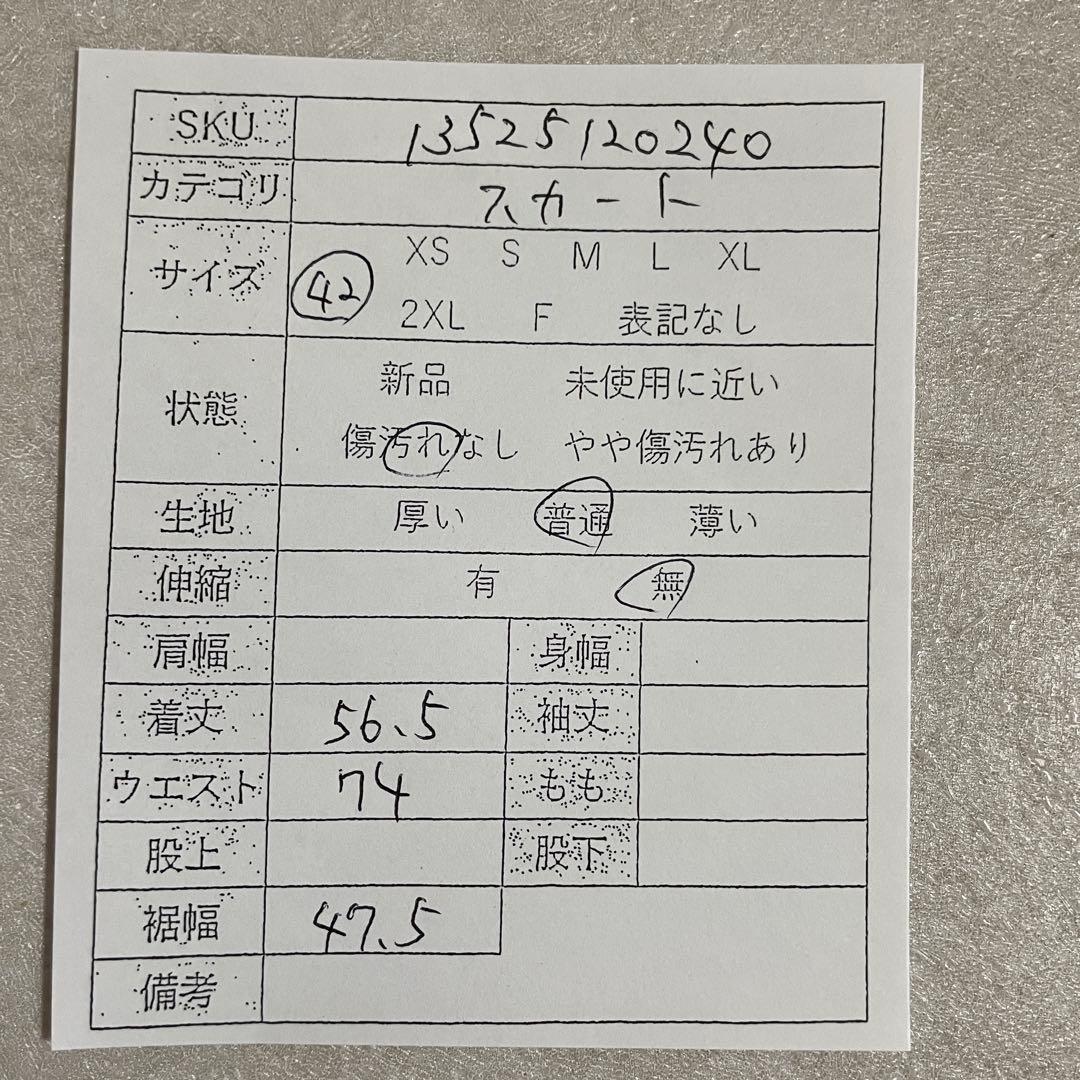 SKU 13525120240
カテゴリ スカート
サイズ 42 XS S M L XL
2XL F 表記なし
状態 新品 未使用に近い
傷汚れなし やや傷汚れあり
生地 厚い 普通 薄い
伸縮 有 無
肩幅 身幅
着丈 56.5 袖丈
ウエスト 74 もも
股上 股下
裾幅 47.5
備考